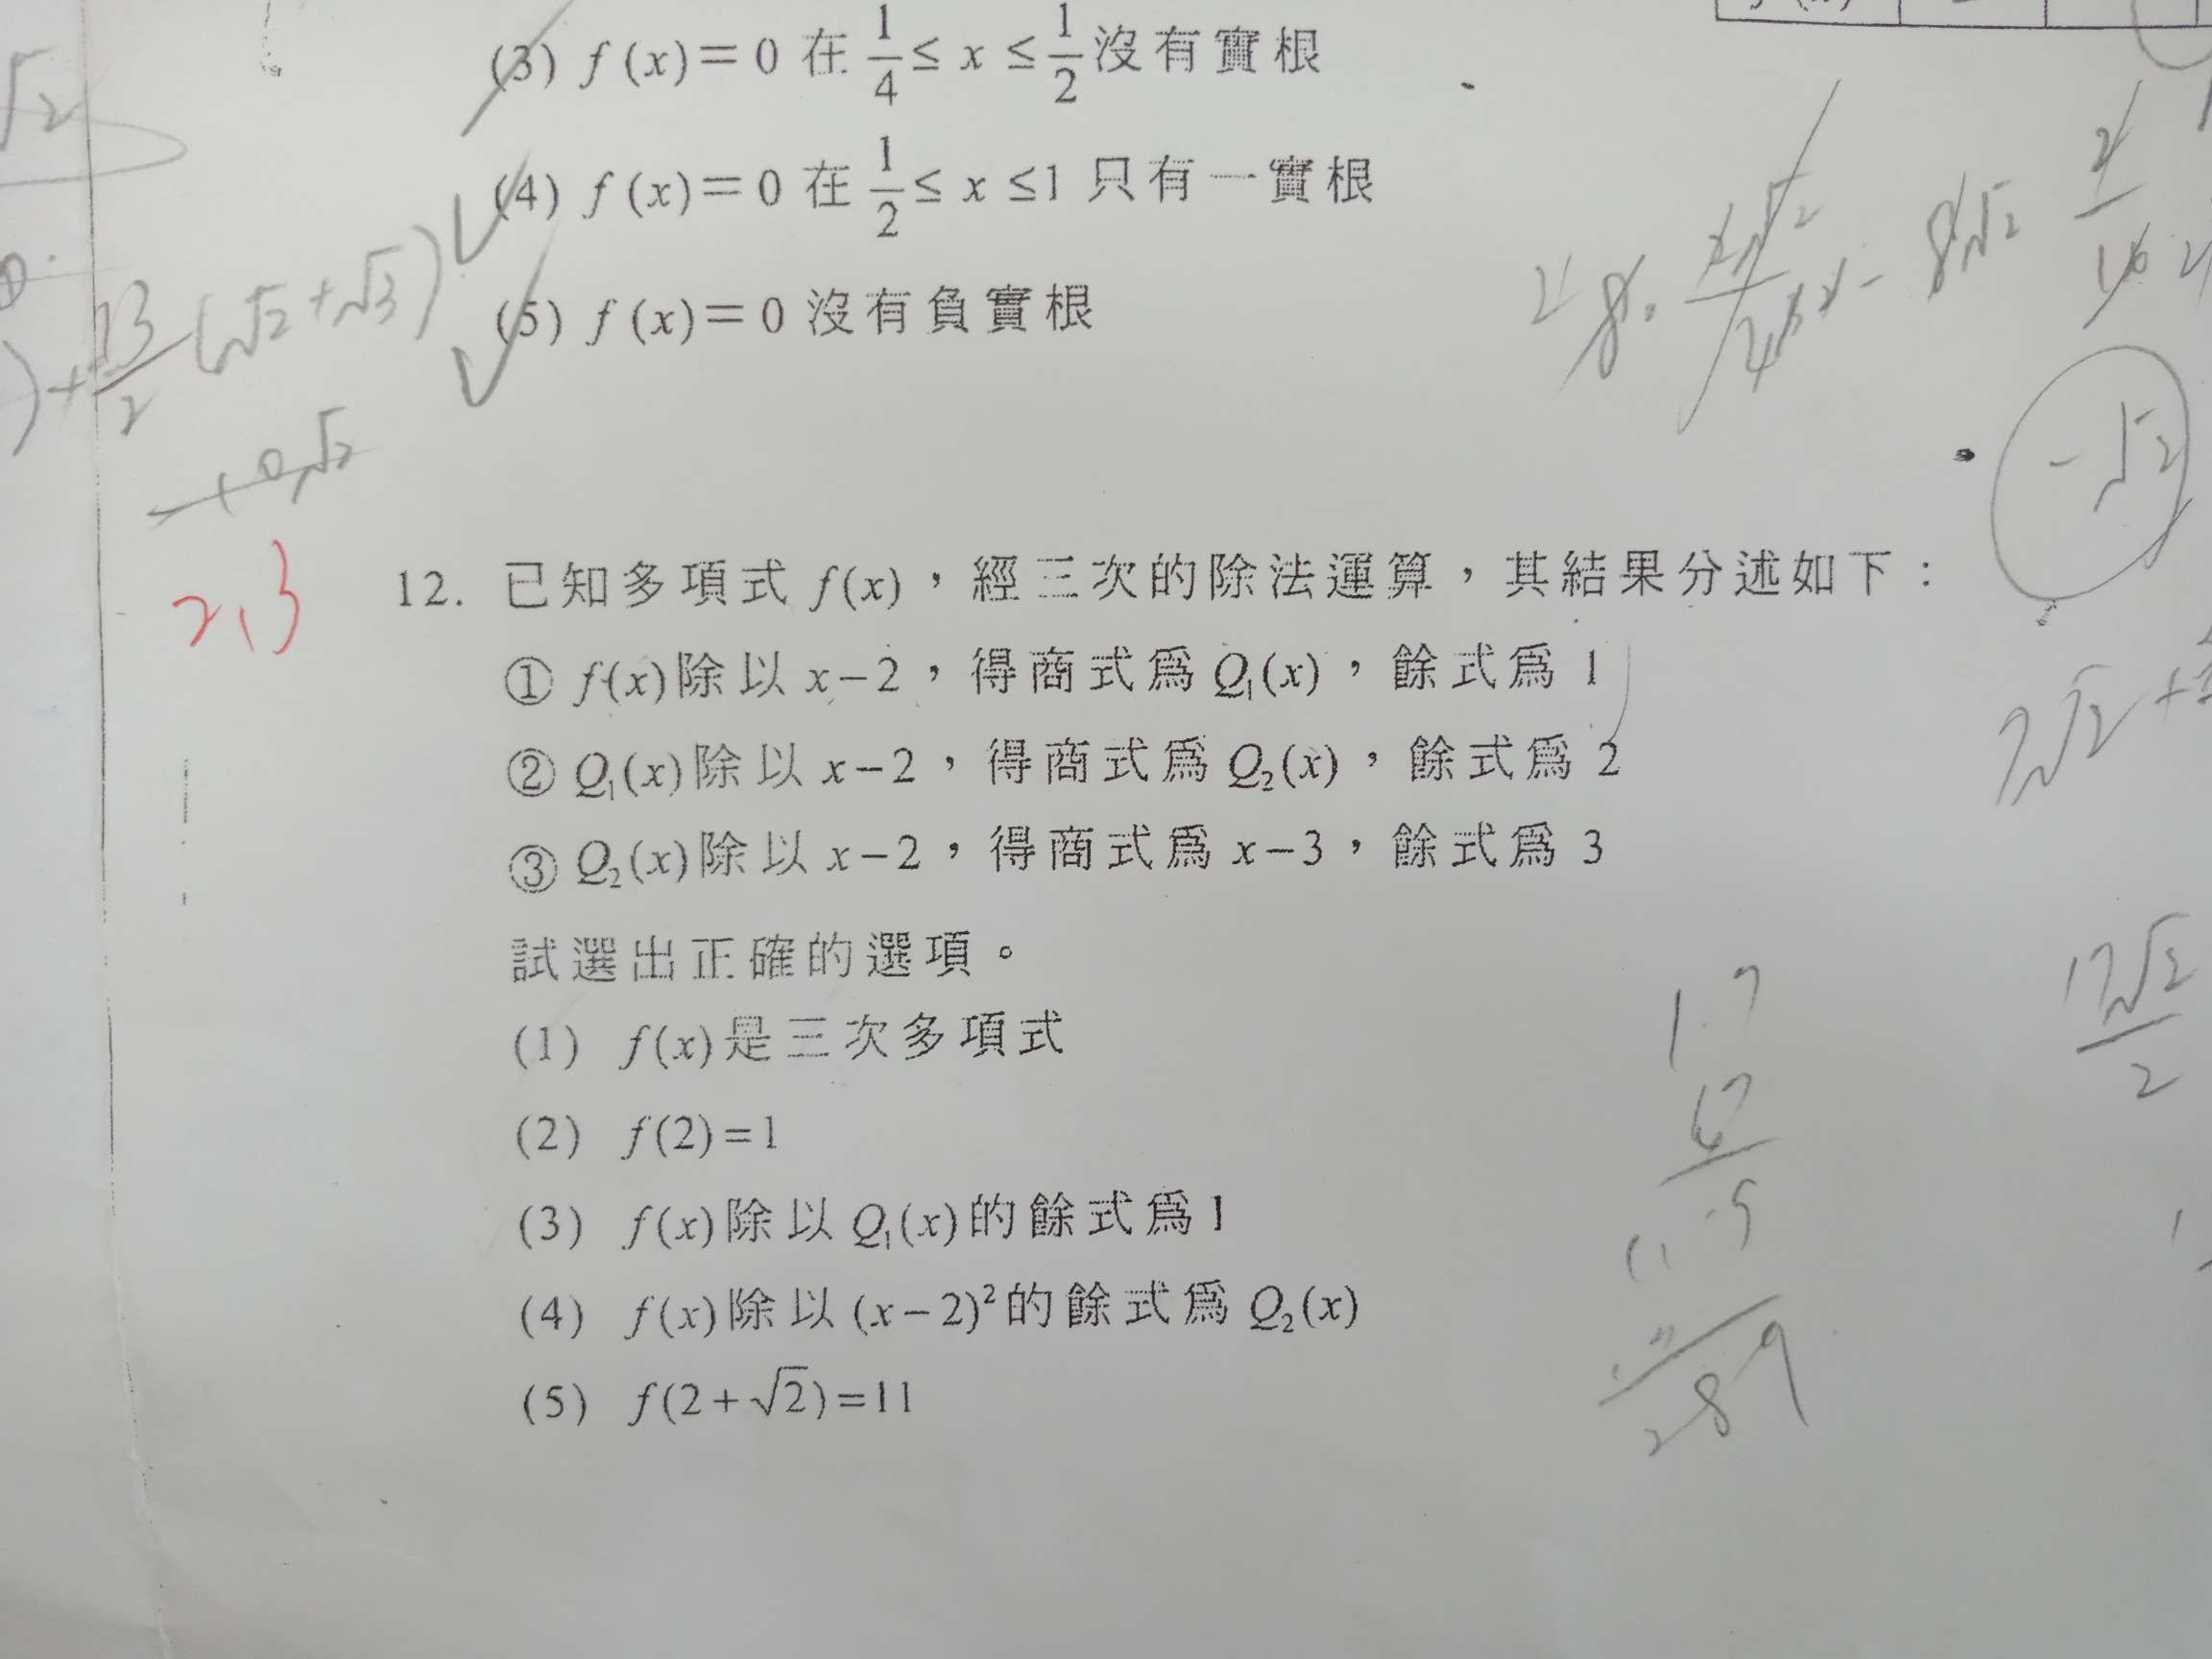 (3) f(x)=0 在 1/4 ≤ x ≤ 1/2 沒有實根
(4) f(x)=0 在 1/2 ≤ x ≤1 只有一實根
(5) f(x)=0 沒有負實根
√2
+ 13/2 (√2+√3)
-√2
2,3
12. 已知多項式 f(x)，經三次的除法運算，其結果分述如下：
① f(x)除以 x−2，得商式爲 Q₁(x)，餘式爲 1
② Q₁(x)除以 x−2，得商式爲 Q₂(x)，餘式爲 2
③ Q₂(x)除以 x−2，得商式爲 x−3，餘式爲 3
試選出正確的選項。
(1) f(x)是三次多項式
(2) f(2)=1
(3) f(x)除以 Q₁(x)的餘式爲1
(4) f(x)除以 (x−2)²的餘式爲 Q₂(x)
(5) f(2+√2)=11
7√2+
17√2/2
289